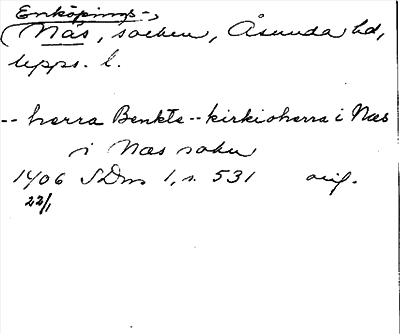 Enköpings-
(Näs, socken, Åsunda hd,
Upps. l.
-- herra Benkte -- kirkioherra i Næs
i Næs sokn
1406 SDns 1, s. 531 orig.
22/1